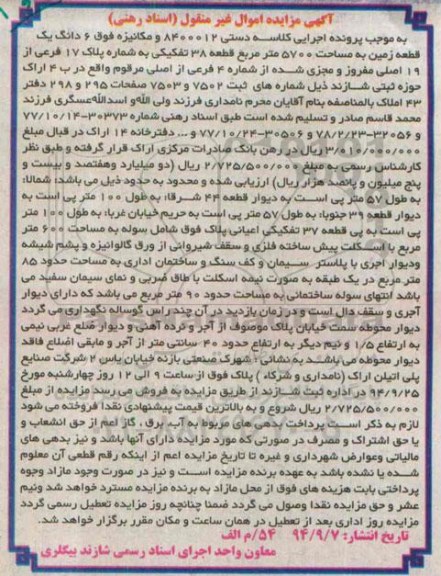 آگهی مزایده اموال غیر منقول (اسناد رهنی)
به موجب پرونده اجرایی کلاسه دستی ۸۴۰۰۰۱۲ و مکانیزه فوق ۶ دانگ یک
قطعه زمین به مساحت ۵۷۰۰ متر مربع قطعه ۳۸ تفکیکی به شماره پلاک ۱۷ فرعی از
۱۹ اصلی مفروز و مجزی شده از شماره ۴ فرعی از اصلی مرقوم واقع در ب ۴ اراک
حوزه ثبتی شازند ذیل شماره های ثبت ۷۵۰۲ و ۷۵۰۳ صفحات ۲۹۵ و ۲۹۸ دفتر
۴۳ املاک بالمناصفه بنام آقایان محرم نامداری فرزند ولی الله و اسدالله عسگری فرزند
محمد قاسم صادر و تسلیم شده است طبق اسناد رهنی شماره ۳۰۳۷۳-۷۷/۱۰/۱۴
و ۳۲۰۵۶-۷۸/۲/۲۳ و ۳۰۵۰۶-۷۷/۱۰/۲۴ و ... دفترخانه ۱۴ اراک در قبال مبلغ
ریال در رهن بانک صادرات مرکزی اراک قرار گرفته و طبق نظر
کارشناس رسمی به مبلغ ۲/۷۲۵/۵۰۰/۰۰۰ ریال (دو میلیارد و هفتصد و بیست و
پنج میلیون و پانصد هزار ریال) ارزیابی شده و محدود به حدود ذیل می باشد: شمالا:
به طول ۵۷ متر پی است به دیوار قطعه ۴۴ شرقا: به طول ۱۰۰ متر پی است به
دیوار قطعه ۳۹ جنوبا: به طول ۵۷ متر پی است به حریم خیابان غربا: به طول ۱۰۰ متر
پی است به پی قطعه ۳۷ تفکیکی اعیانی پلاک فوق شامل سوله به مساحت ۶۰۰ متر
مربع با اسکلت پیش ساخته فلزی و سقف شیروانی از ورق گالوانیزه و پشم شیشه
ودیوار اجری با پلاستر سیمان و کف سنگ و ساختمان اداری به مساحت حدود ۸۵
متر مربع در یک طبقه به صورت نیمه اسکلت با طاق ضربی و نمای سیمان سفید می
باشد انتهای سوله ساختمانی به مساحت حدود ۹۰ متر مربع می باشد که دارای دیوار
آجری و سقف دال است و در زمان بازدید در آن چند راس گوساله نگهداری می گردد
دیوار محوطه سمت خیابان پلاک موصوف از آجر و نرده آهنی و دیوار ضلع غربی نیمی
به ارتفاع ۱/۵ و نیم دیگر به ارتفاع حدود ۴۰ سانتی متر از آجر و مابقی اضلاع فاقد
دیوار محوطه می باشد به نشانی: شهرک صنعتی بازنه خیابان یاس ۲ شرکت صنایع
پلی اتیلن اراک (نامداری و شرکاء) پلاک فوق از ساعت ۹ الی ۱۲ روز چهارشنبه مورخ
۹۴/۹/۲۵ در اداره ثبت شازند از طریق مزایده به فروش می رسد مزایده از مبلغ
۲/۷۲۵/۵۰۰/۰۰۰ ریال شروع و به بالاترین قیمت پیشنهادی نقدا فروخته می شود
لازم به ذکر است پرداخت بدهی های مربوط به آب، برق، گاز اعم از حق انشعاب و
یا حق اشتراک و مصرف در صورتی که مورد مزایده دارای آنها باشد و نیز بدهی های
مالیاتی وعوارض شهرداری و غیره تا تاریخ مزایده اعم از اینکه رقم قطعی آن معلوم
شده یا نشده باشد به عهده برنده مزایده است و نیز در صورت وجود مازاد وجوه
پرداختی بابت هزینه های فوق از محل مازاد به برنده مزایده مسترد خواهد شد ونیم
عشر و حق مزایده نقدا وصول می گردد ضمنا چنانچه روز مزایده تعطیل رسمی گردد
مزایده روز اداری بعد از تعطیل در همان ساعت و مکان مقرر برگزار خواهد شد.
تاریخ انتشار: ۹۴/۹/۷ ۵۴/م الف
معاون واحد اجرای اسناد رسمی شازند بیگلری